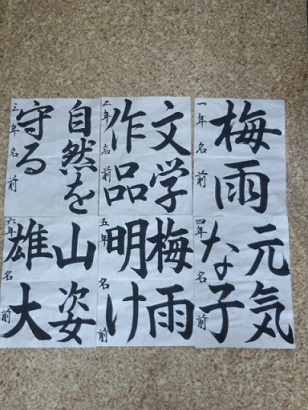 梅雨
一年 名前
文学
作品
二年 名前
自然を
守る
三年 名前
元気
な子
四年 名前
梅雨
明け
五年 名前
山姿
雄大
六年 名前